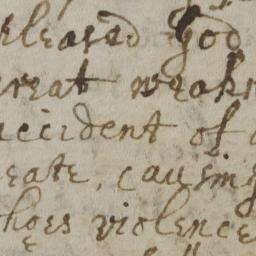 eleased God
reat weak
ccident of
eate, causing
hoes violence